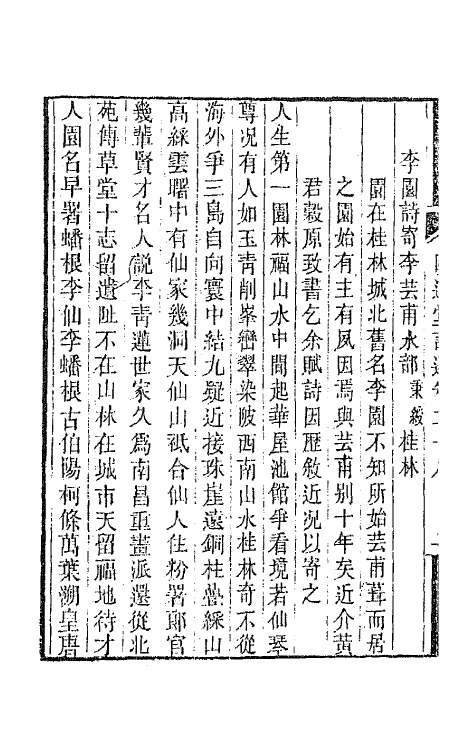 李園詩寄李芸甫水部秉綬桂林
園在桂林城北舊名李園不知所始芸甫葺而居
之園始有主有夙因焉與芸甫别十年矣近介黄
君穀原致書乞余賦詩因歷敘近况以寄之
人生第一園林福山水中間起華屋池館爭看境若仙琴
尊况有人如玉青削峯巒翠染陂西南山水桂林奇不從
海外爭三島自向寰中結九疑近接珠崖遠銅柱疊綵山
高綵雲曙中有仙家幾洞天仙山祇合仙人住粉署郎官
幾輩賢才名人說李青蓮世家久爲南昌重畫派還從北
苑傳草堂十志留遺阯不在山林在城市天留福地待才
人園名早署蟠根李仙李蟠根古伯陽柯條萬葉溯皇唐